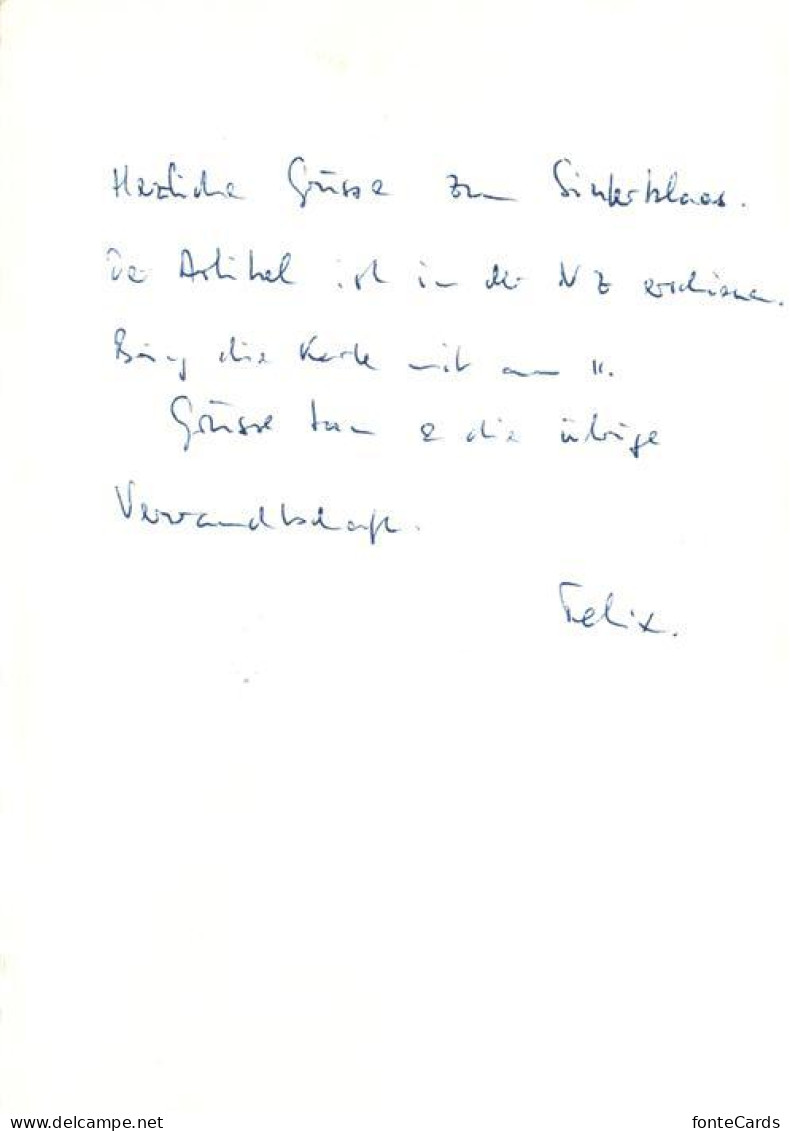 Herzliche Grüsse zum Sinterklaas.
Der Artikel ist in der NZ erschienen.
Bring die Karte mit am 11.
Grüsse & die übrige
Verwandtschaft.
Felix.
www.delcampe.net
fonteCards